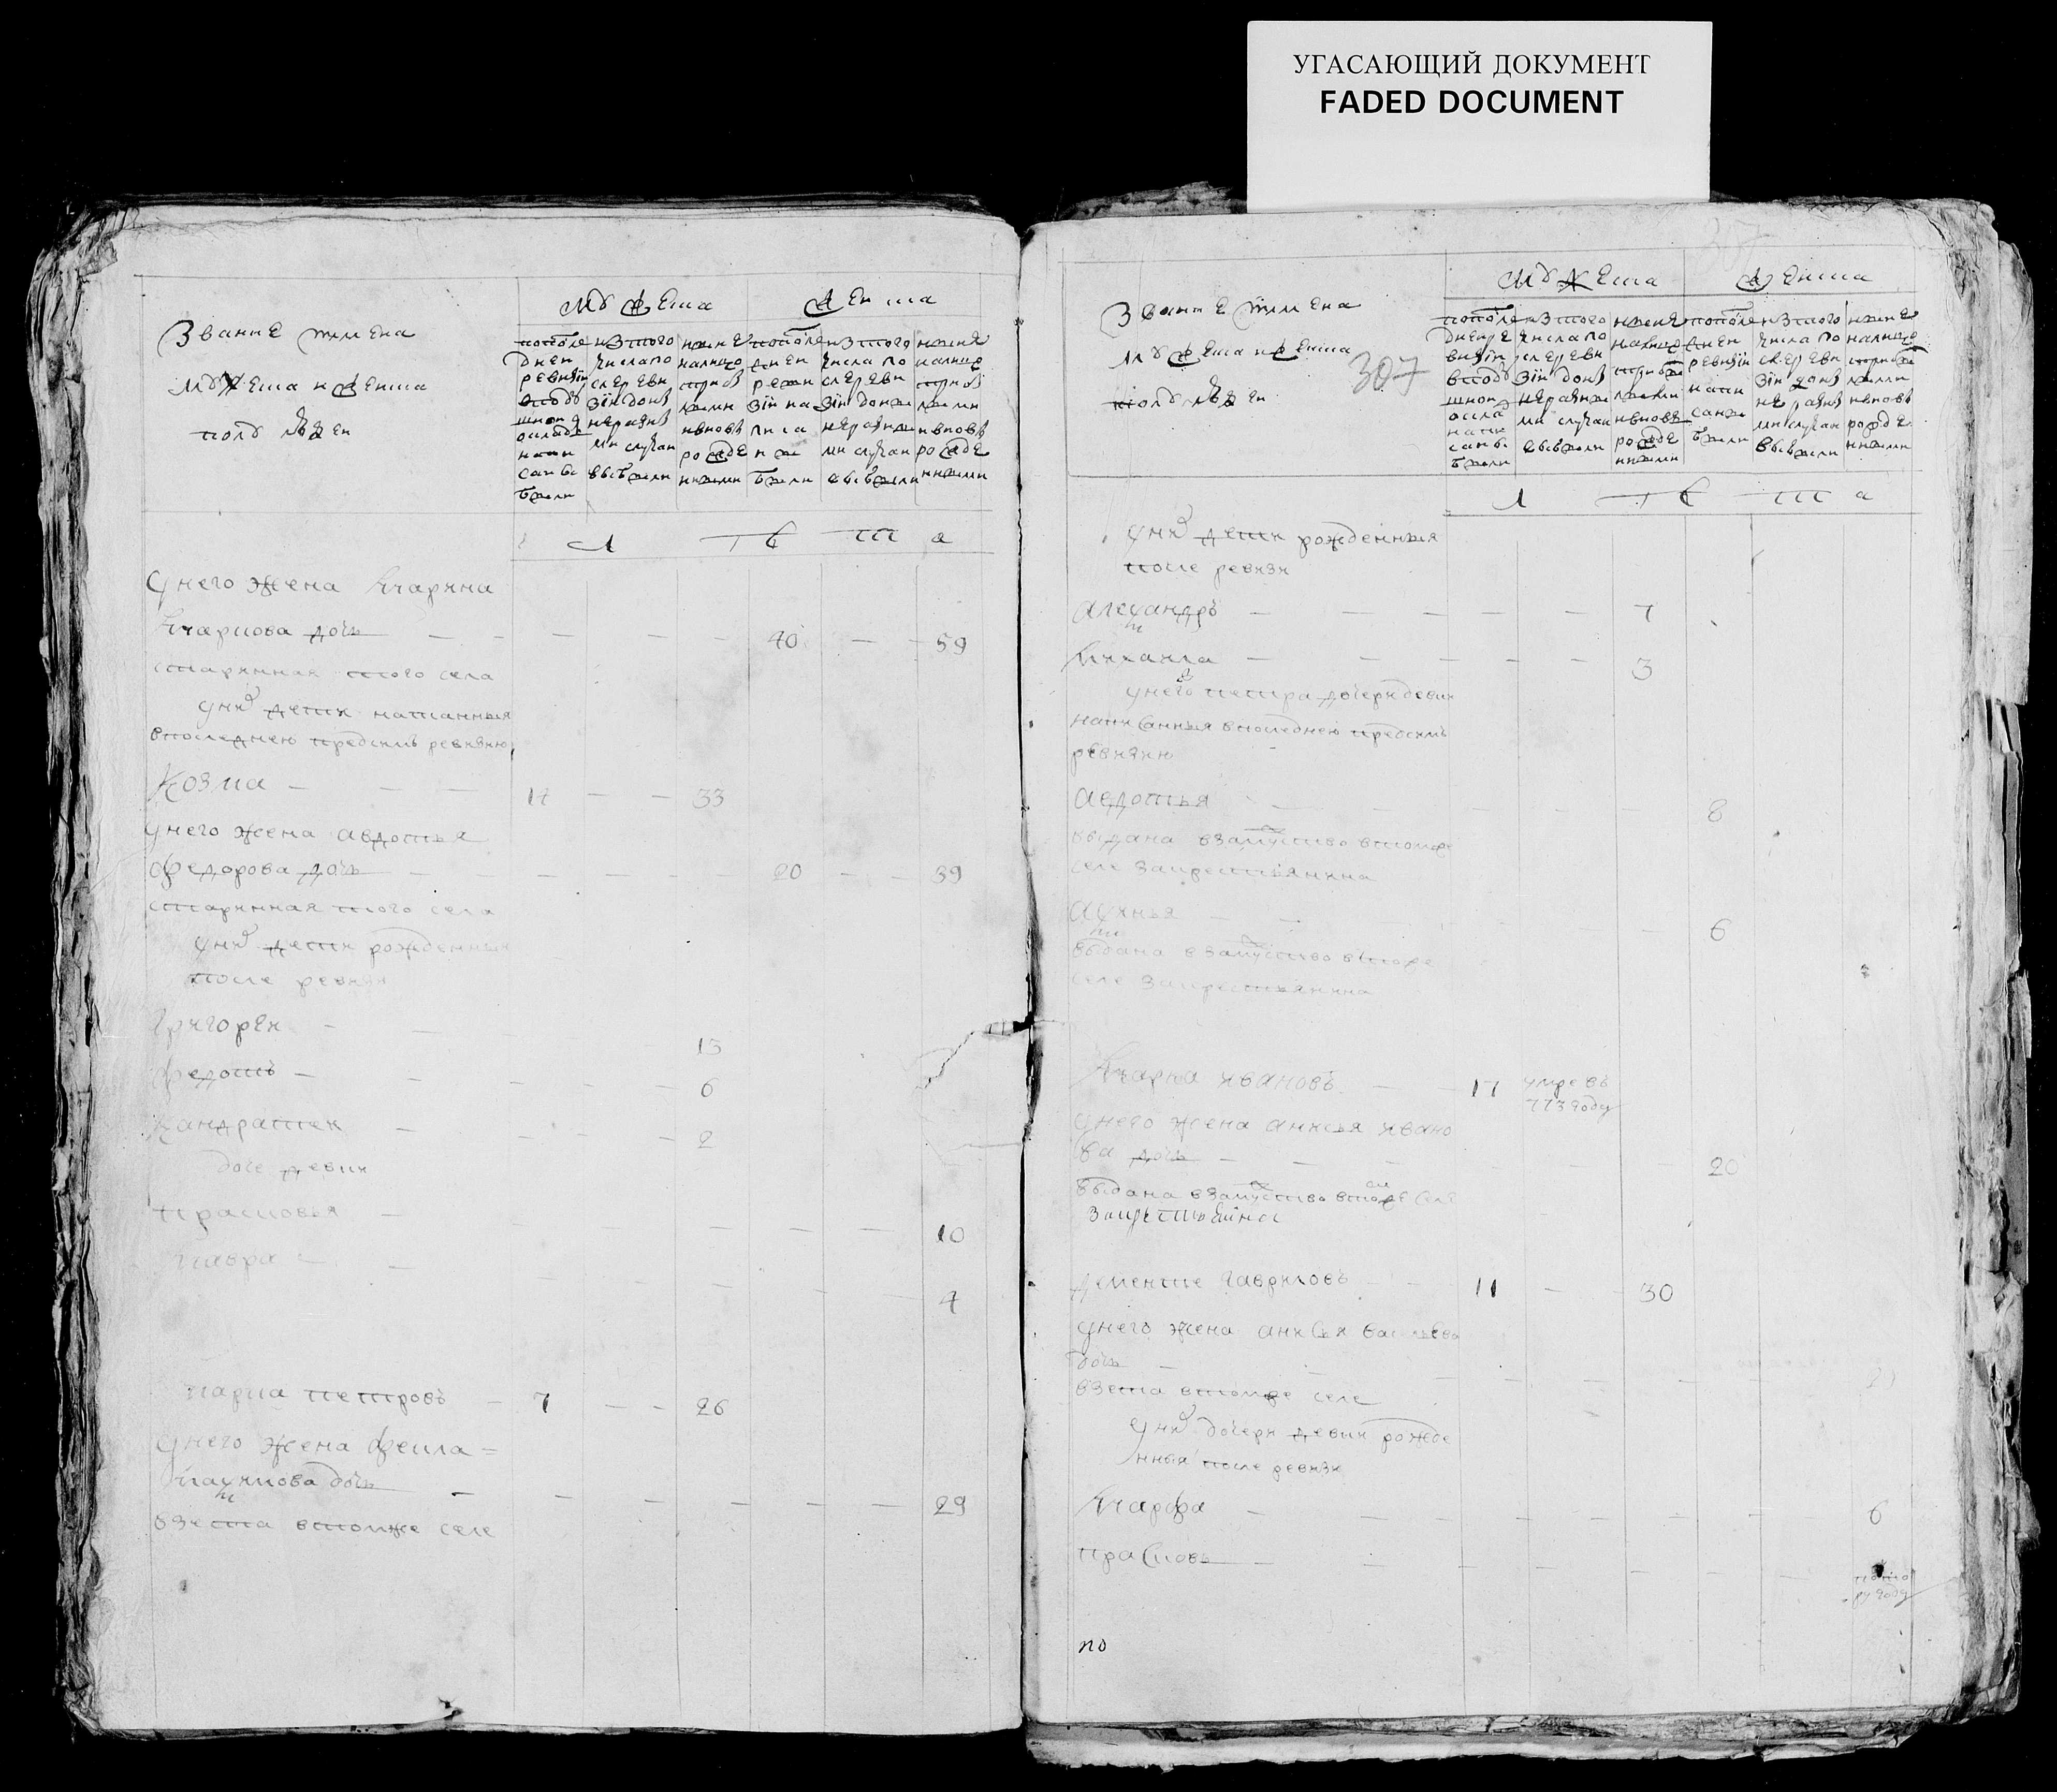 УГАСАЮЩИЙ ДОКУМЕНТ
FADED DOCUMENT
Звание имена
мужеска и женска
полу людей
мужеска
женска
по последней ревизии в подушной оклад написаны были
из того числа после ревизии до ныне разными случаи выбыли
ныне на лицо с прибылыми и вновь рожденными
по последней ревизии написаны были
из того числа после ревизии до ныне разными случаи выбыли
ныне на лицо с прибылыми и вновь рожденными
л е т а
у него жена Марина
Маркова дочь 40 59
старинная того села
у них дети написанныя
в последнею пред сим ревизию
Козма 14 33
у него жена авдотья
федорова дочь 20 39
старинная того села
у них дети рожденныя
после ревизи
Григореи 13
федотъ 6
Кандратеи 2
доче девки
прасковья 10
мавра 4
марка петровъ 7 26
у него жена фекла
дочь 29
взета в томже селе
307
Звание имена
мужеска и женска
полу людей
мужеска
женска
по последней ревизии в подушной оклад написаны были
из того числа после ревизии до ныне разными случаи выбыли
ныне на лицо с прибылыми и вновь рожденными
по последней ревизии написаны были
из того числа после ревизии до ныне разными случаи выбыли
ныне на лицо с прибылыми и вновь рожденными
л е т а
у них дети рожденныя
после ревизи
александръ 7
михаила 3
у него петра дочери девки
написанныя в последнею пред сим
ревизию
авдотья 8
выдана в замужство в томже
селе за крестьянина
6
выдана в замужство в томже
селе за крестьянина
Марка ивановъ 17 умре въ
773 году
у него жена анисья ивано
ва дочь 20
выдана в замужство в томже селе
за крестьянина
дементеи гавриловъ 11 30
у него жена анисья васильева
дочь
взета в томже селе
у них дочери девки рожде
нныя после ревизи
Марфа 6
прасковья
по